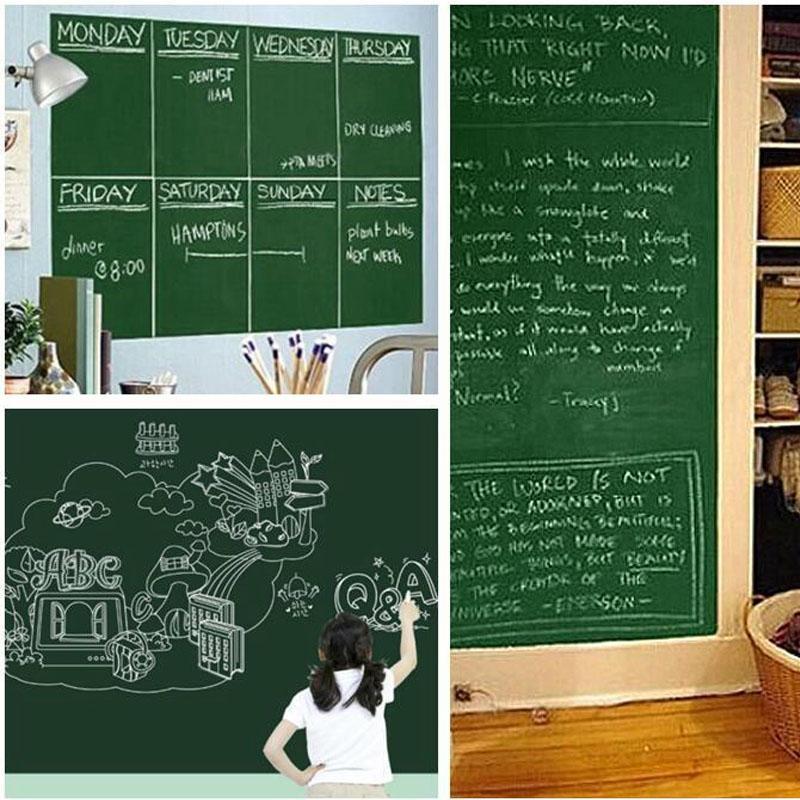 MONDAY
TUESDAY
WEDNESDAY
THURSDAY
- DENTIST
11AM
DRY CLEANING
FRIDAY
SATURDAY
SUNDAY
NOTES
dinner
@ 8:00
HAMPTONS
plant bulbs
NEXT WEEK
N LOOKING BACK,
NG THAT "RIGHT NOW I'D
MORE NERVE"
- C. Frazier (Cold Mountain)
mes I wish the whole world
itself upside down, shake
up like a snowglobe and
everyone into a totally different
I wonder what'd happen, &
do everything the way we always
would we somehow change in
as if it would have actually
possible all along to change if
Normal?
- Tracey J
THE WORLD IS NOT
OR ADORNED, BUT IS
THE BEGINNING BEAUTIFUL;
GOD HAS NOT MADE SOME
BEAUTIFUL THINGS, BUT BEAUTY
THE CREATOR OF THE
UNIVERSE - EMERSON -
과학시간
ABC
Q&A